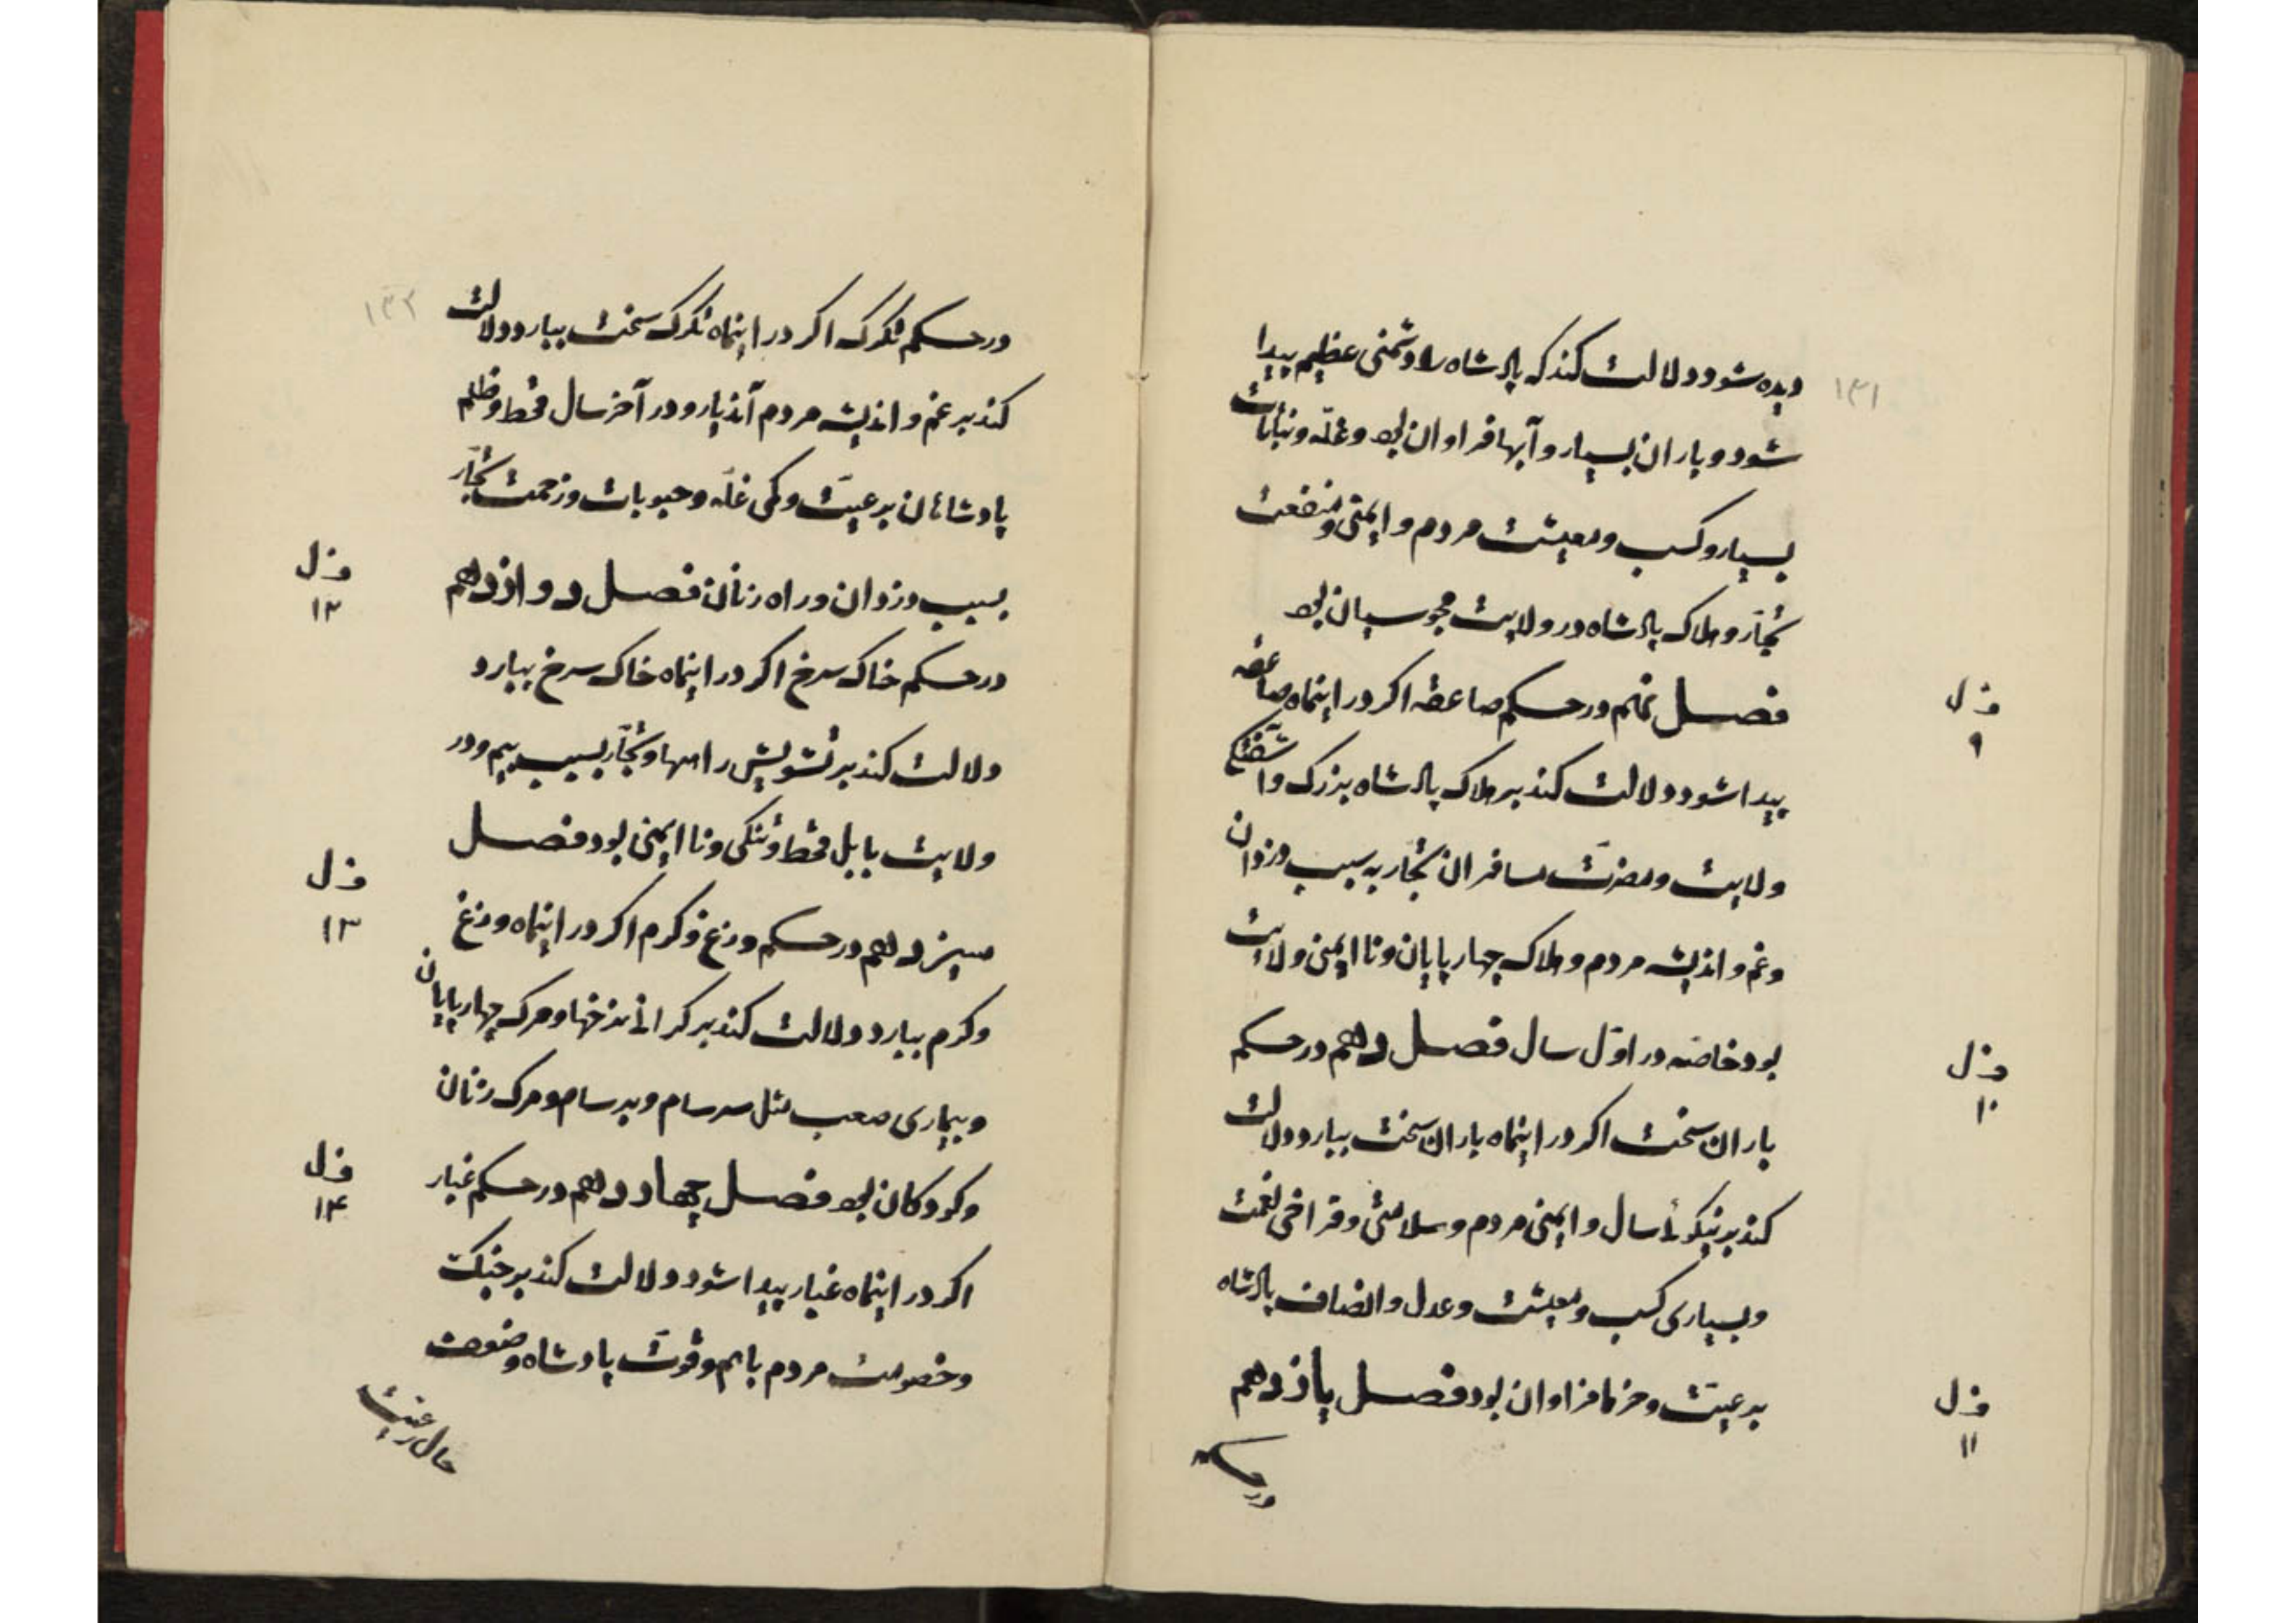 ۱۳۱
دیده شود دلالت کند که پادشاه را دشمنی عظیم پیدا
شود و باران بسیار و آبها فراوان بود و غلّه و نباتات
بسیار و کسب و معیشت مردم و ایمنی و منفعت
تجّار و هلاک پادشاه در ولایت مجوسیان بود
فصل نهم در حکم صاعقه اکر در اینماه صاعقه
ف ل
۹
پیدا شود دلالت کند بر هلاک پادشاه بزرک و آشفتکی
ولایت و مضرّت مسافران تجّار به سبب دزدان
و غم و اندیشه مردم و هلاک چهارپایان و نا ایمنی ولایت
بود خاصّه در اوّل سال فصل دهم در حکم
ف ل
۱۰
باران سخت اکر در اینماه باران سخت ببارد دلالت
کند بر نیکوئی سال و ایمنی مردم و سلامتی و فراخی نعمت
و بسیاری کسب و معیشت و عدل و انصاف پادشاه
بر عیّت و خرما فراوان بود فصل یازدهم
ف ل
۱۱
در حکم
۱۳۲
در حکم تکرک اکر در اینماه تکرک سخت ببارد دلالت
کند بر غم و اندیشه مردم آندیار و در آخر سال قحط و ظلم
پادشاهان بر عیّت و کمی غلّه و حبوبات و زحمت تجّار
بسبب دزدان و راه زنان فصل دوازدهم
ف ل
۱۲
در حکم خاک سرخ اکر در اینماه خاک سرخ ببارد
دلالت کند بر تشویش راهها و تجّار بسبب بیم و در
ولایت بابل قحط و تنکی و نا ایمنی بود فصل
ف ل
۱۳
سیزدهم در حکم وزغ و کرم اکر در اینماه وزغ
و کرم ببارد دلالت کند بر کرانی نرخها و مرک چهارپایان
و بیماری صعب مثل سرسام و برسام و مرک زنان
و کودکان بود فصل چهاردهم در حکم غبار
ف ل
۱۴
اکر در اینماه غبار پیدا شود دلالت کند بر جنک
و خصومت مردم باهم و قوّت پادشاه و ضعف
حال رعیّت